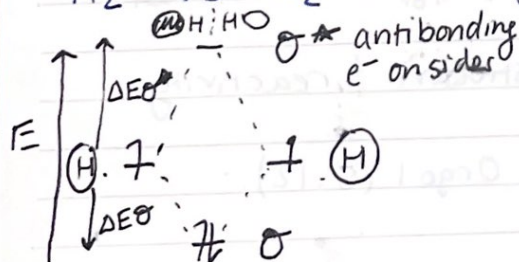 H H σ* antibonding
e⁻ on sides
ΔEσ*
E
H H
ΔEσ
σ